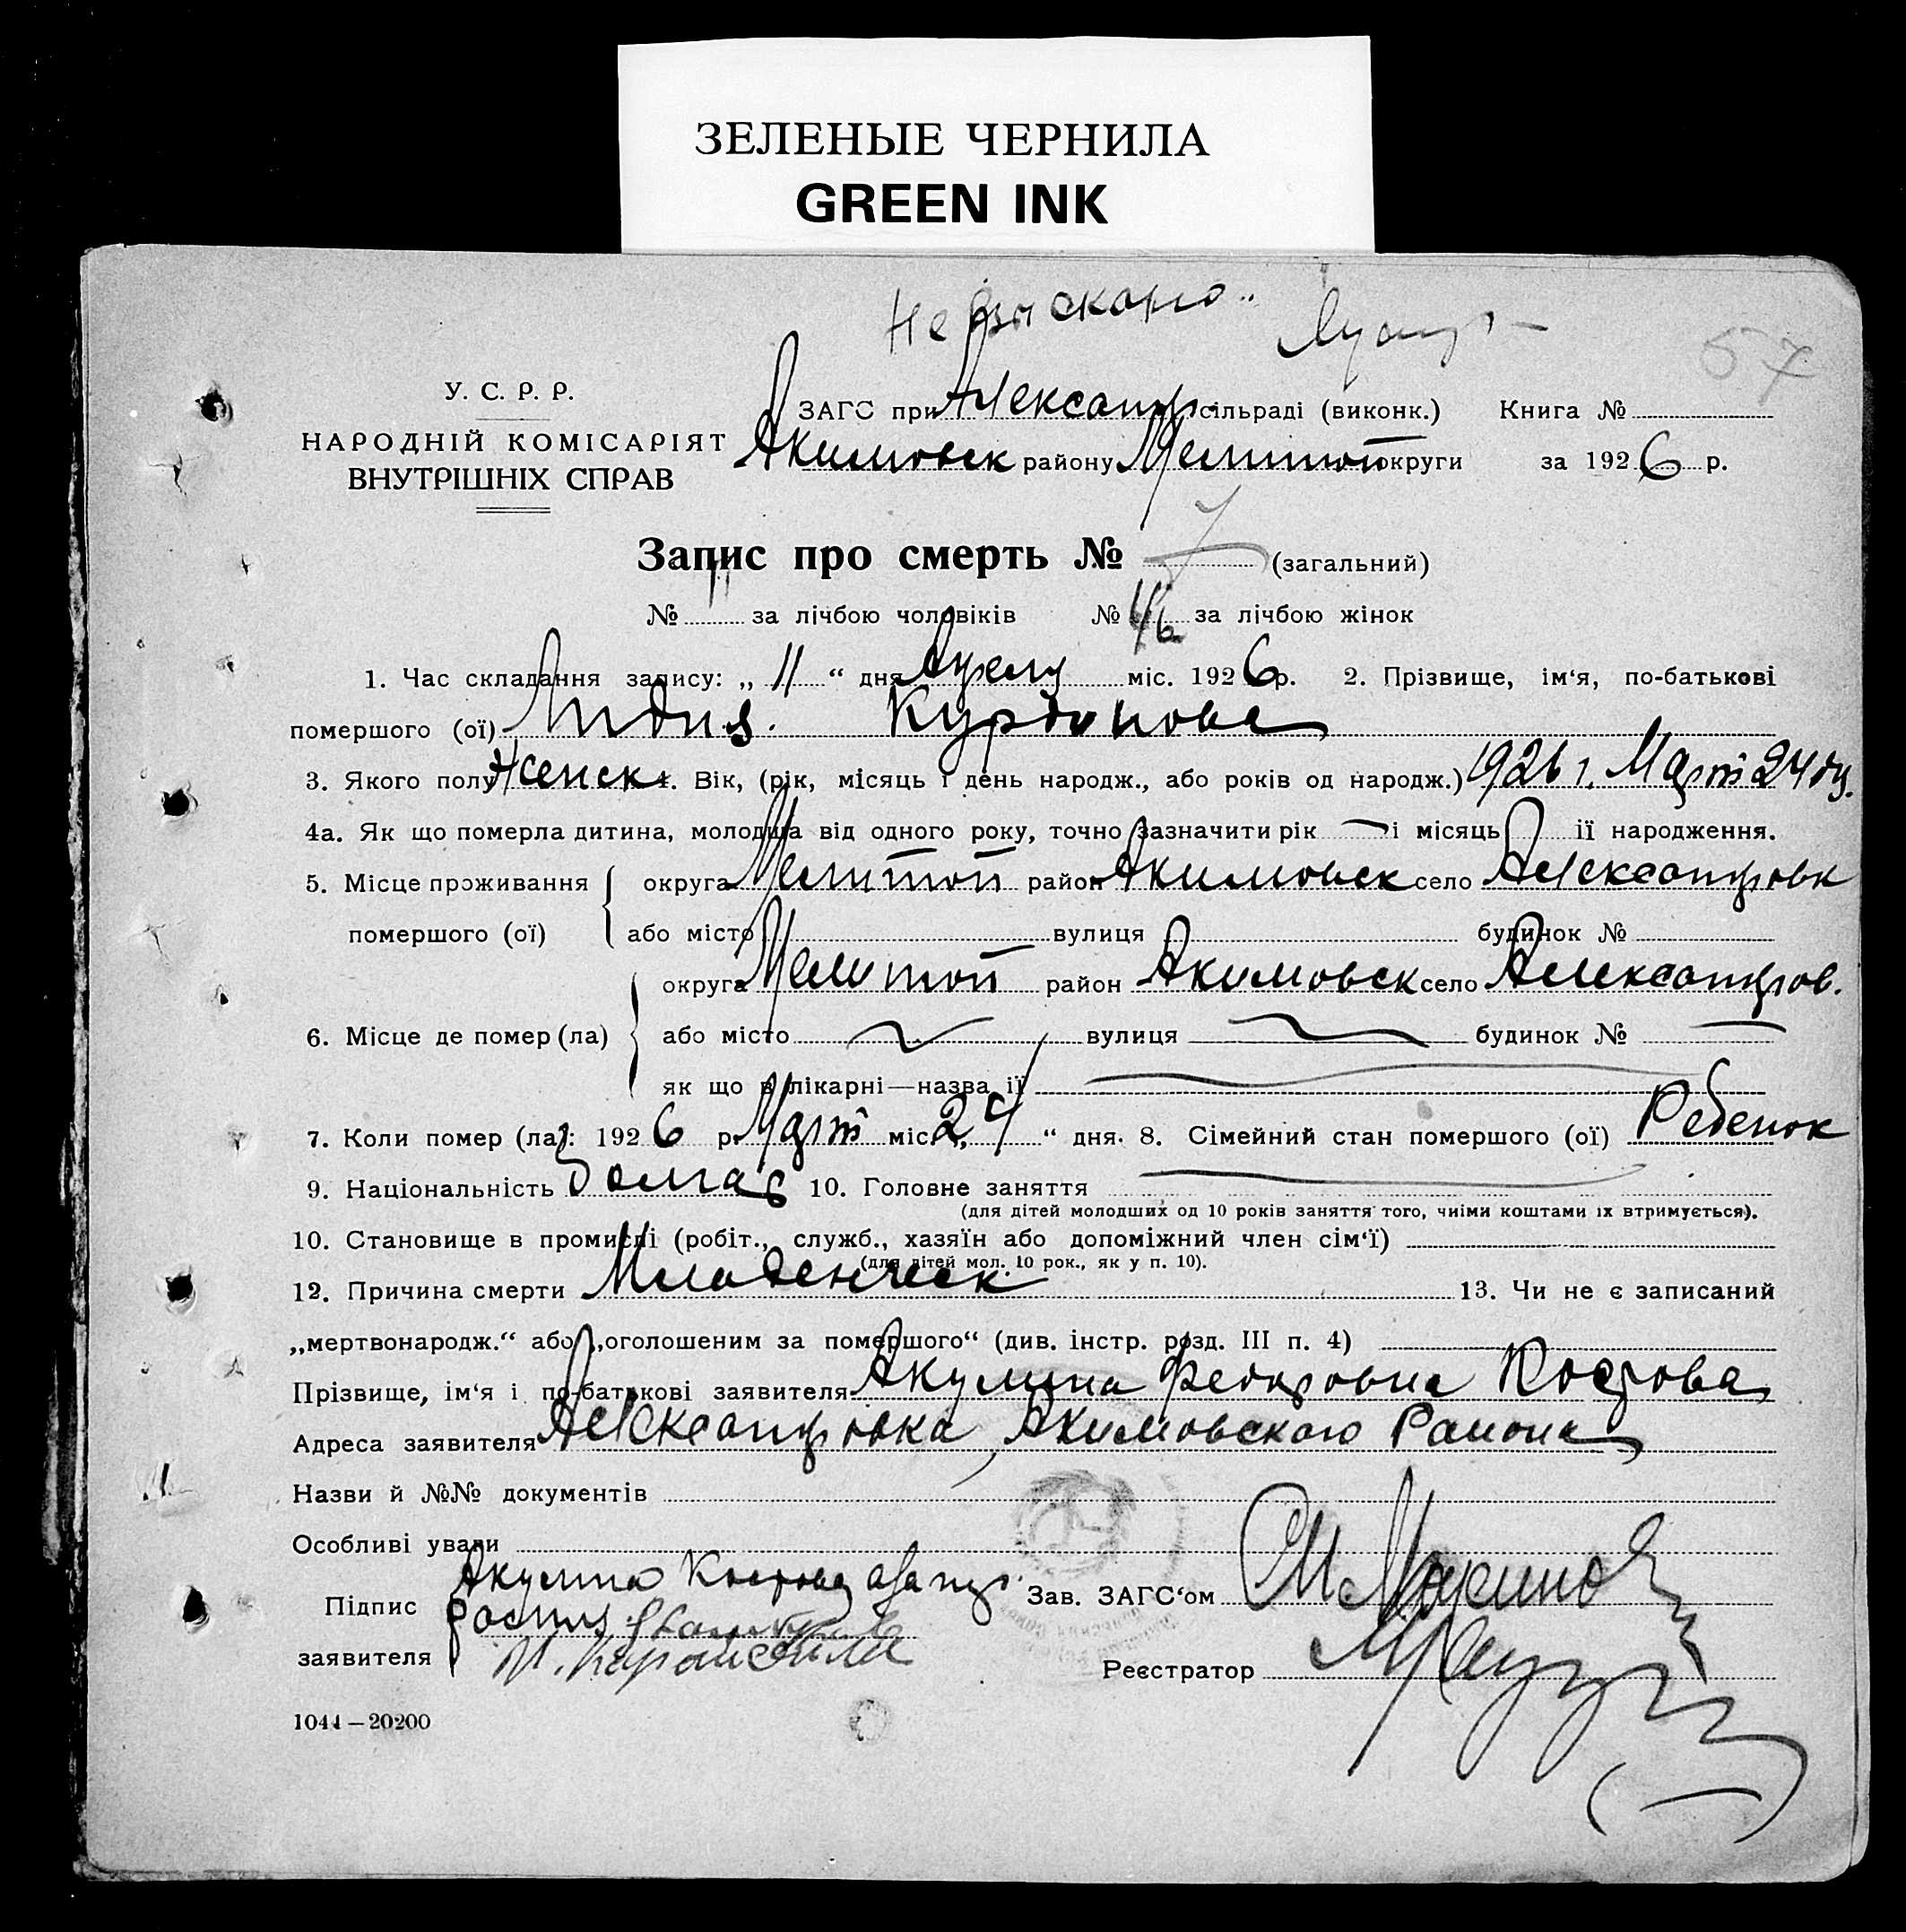 ЗЕЛЕНЫЕ ЧЕРНИЛА
GREEN INK
57
У. С. Р. Р.
НАРОДНІЙ КОМІСАРІЯТ
ВНУТРІШНІХ СПРАВ
ЗАГС при Александр. сільраді (виконк.) Книга №
Акимовск району Мелитоп округи за 1926 р.
Запис про смерть № 7 (загальний)
№ за лічбою чоловіків № за лічбою жінок
1. Час складання запису: „ 11 “ дня Апреля міс. 1926 р. 2. Прізвище, ім‘я, по-батькові
помершого (ої) Лидия Курдинова
3. Якого полу Женск 4. Вік, (рік, місяць і день народж., або років од народж.) 1926 г. Март 24 дн.
4а. Як що померла дитина, молодща від одного року, точно зазначити рік — і місяць її народження.
5. Місце проживання округа Мелитоп район Акимовск село Александровк
помершого (ої) або місто вулиця будинок №
округа Мелитоп район Акимовск село Александров.
6. Місце де помер (ла) або місто вулиця будинок № —
як що в лікарні—назва її
7. Коли помер (ла): 1926 р. Март міс. „24“ дня. 8. Сімейний стан помершого (ої) Ребенок
9. Національність Болгар 10. Головне заняття
(для дітей молодших од 10 років заняття того, чиїми коштами їх втримується).
10. Становище в промислі (робіт., служб., хазяїн або допоміжний член сім‘ї)
(для дітей мол. 10 рок., як у п. 10).
12. Причина смерти Младенческ. 13. Чи не є записаний
„мертвонародж.“ або „оголошеним за помершого“ (див. інстр. розд. III п. 4)
Прізвище, ім‘я і по-батькові заявителя Акулина Федоровна Костова
Адреса заявителя Александровка, Акимовскаго Района
Назви й №№ документів
Особливі уваги
Акулина
Підпис Зав. ЗАГС‘ом
заявителя
Реєстратор
1044—20200